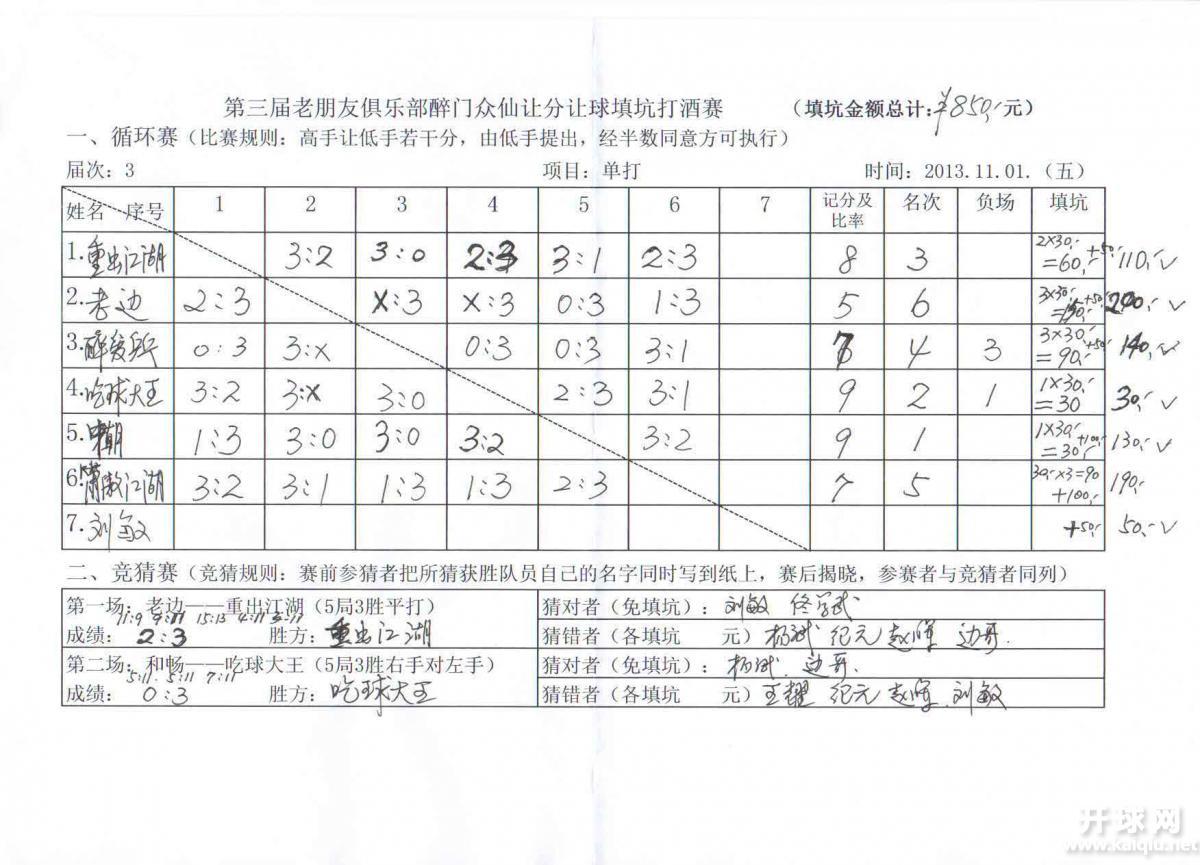 第三届老朋友俱乐部醉门众仙让分让球填坑打酒赛 （填坑金额总计:￥850,-元）
一、循环赛（比赛规则：高手让低手若干分，由低手提出，经半数同意方可执行）
届次：3 项目：单打 时间：2013.11.01.（五）
姓名 序号 1 2 3 4 5 6 7 记分及比率 名次 负场 填坑
1.重出江湖 3:2 3:0 2:3 3:1 2:3 8 3 2×30,-=60,- +50,- 110,-✓
2.老边 2:3 ×:3 ×:3 0:3 1:3 5 6 3×30,- +50,- 200,-✓
3. 0:3 3:× 0:3 0:3 3:1 4 3 3×30,-=90,- +50,- 140,-✓
4.吃球大王 3:2 3:× 3:0 2:3 3:1 9 2 1 1×30,-=30 30,-✓
5. 1:3 3:0 3:0 3:2 3:2 9 1 1×30,-=30,- +100,- 130,-✓
6.笑傲江湖 3:2 3:1 1:3 1:3 2:3 7 5 30,-×3=90 +100,- 190,-
7.刘敏 +50,- 50,-✓
二、竞猜赛（竞猜规则：赛前参猜者把所猜获胜队员自己的名字同时写到纸上，赛后揭晓，参赛者与竞猜者同列）
第一场：老边——重出江湖（5局3胜平打） 猜对者（免填坑）：刘敏 佟学武
11:9 9:11 15:13 4:11
成绩：2:3 胜方：重出江湖 猜错者（各填坑 元）杨斌 纪元 赵军 边哥.
第二场：和畅——吃球大王（5局3胜右手对左手） 猜对者（免填坑）：杨斌. 边哥.
5:11. 5:11 7:11
成绩：0:3 胜方：吃球大王 猜错者（各填坑 元）王耀 纪元 赵军.刘敏
开球网
www.kaiqiu.net